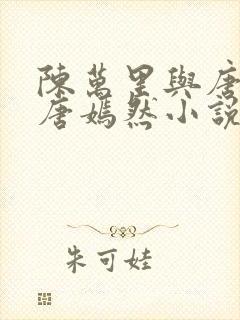 陳萬里與唐
唐嫣然小說
朱可娃